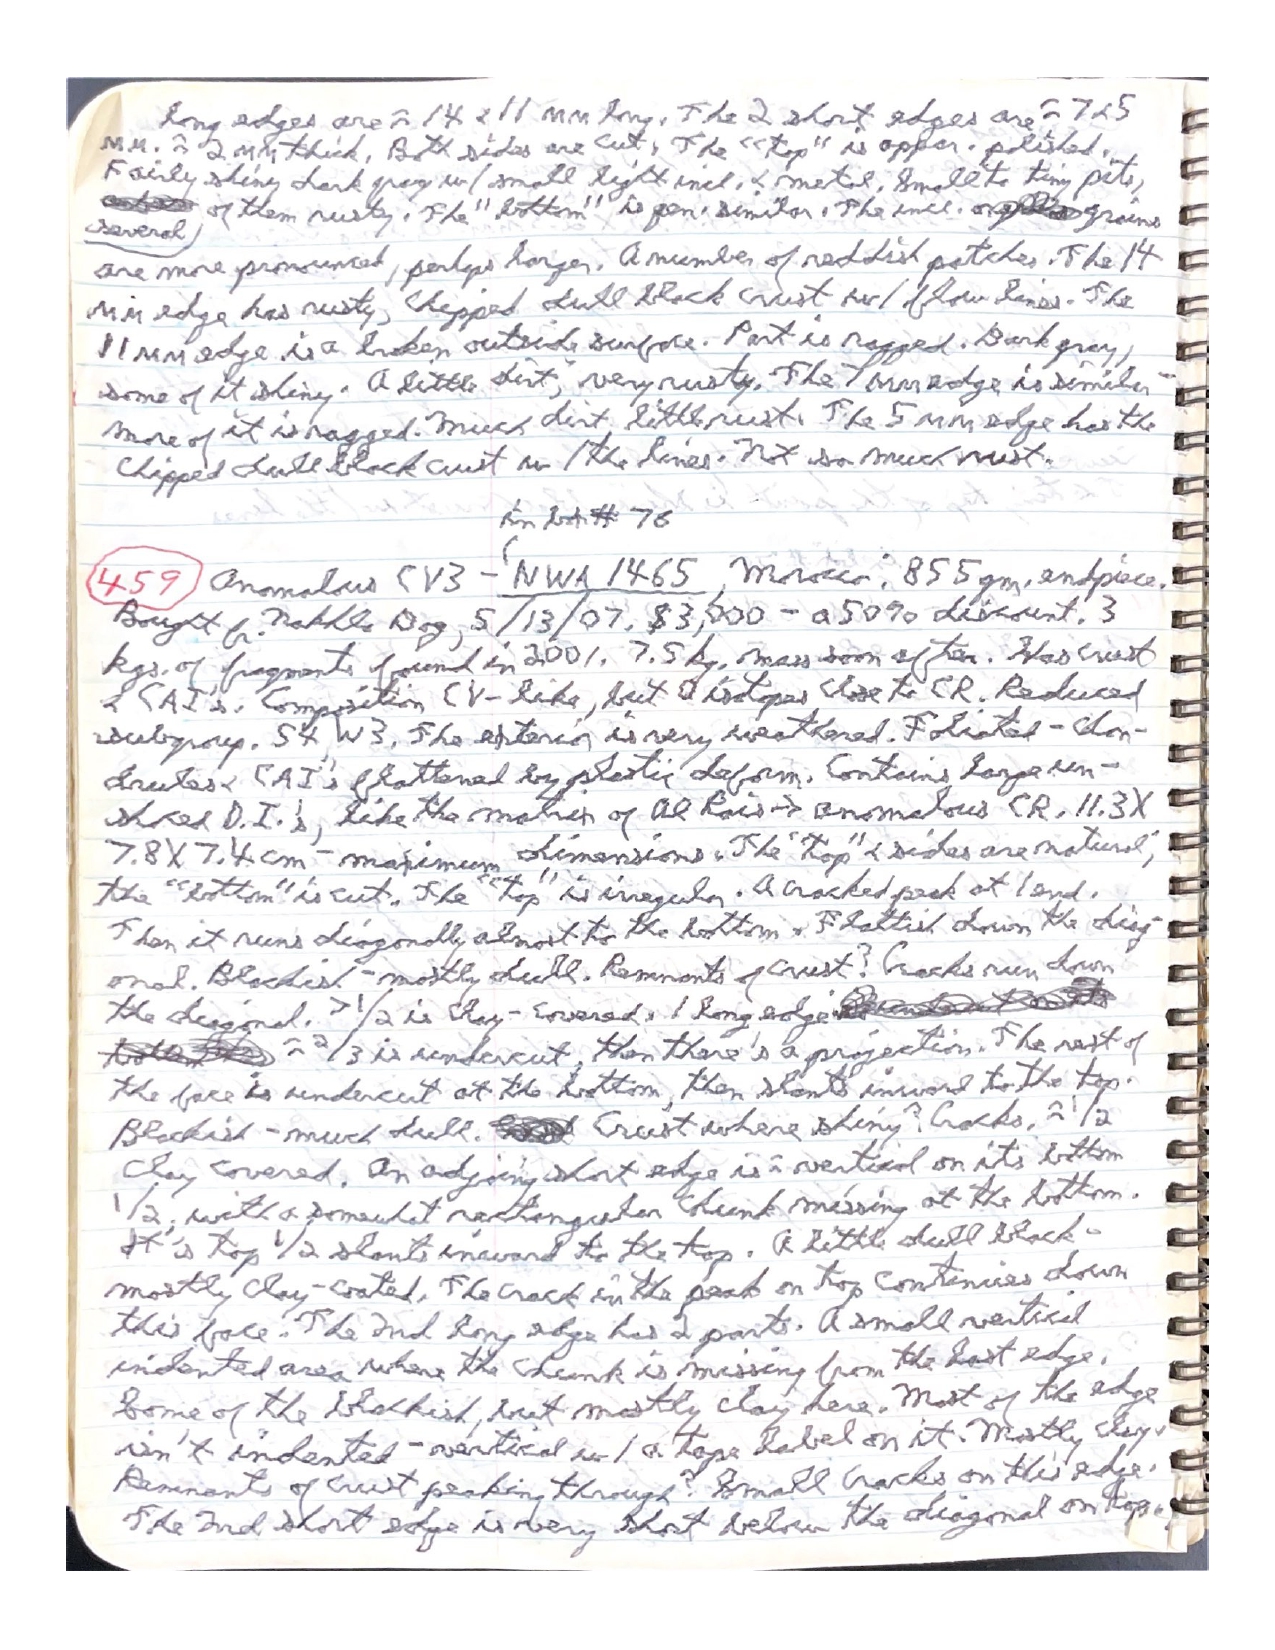 long edges are ≈ 14 & 11 mm long. The 2 short edges are ≈ 7 & 5
mm. ≈ 2 mm thick. Both sides are cut. The "top" is appar. polished.
Fairly shiny dark gray w/ small light incl. & metal. Small to tiny pits,
several of them rusty. The "bottom" is gen. similar. The incl. or grains
are more pronounced, perhaps larger. A number of reddish patches. The 14
mm edge has rusty, chipped dull black crust w/ flow lines. The
11 mm edge is a broken outside surface. Part is ragged. Dark gray,
some of it shiny. A little dirt, very rusty. The 7 mm edge is similar -
more of it is ragged. Much dirt little rust. The 5 mm edge has the
chipped dull black crust w/ the lines. Not so much rust.
In lot # 76
459 Anomalous CV3 - NWA 1465, Morocco. 855 gm. endpiece.
Bought fr. Nakhla Dog, 5/13/07. $3,000 - a 50% discount. 3
kgs. of fragments found in 2001. 7.5 kg. mass soon after. Has crust
& CAI's. Composition CV-like, but O isotopes close to CR. Reduced
subgroup. S4, W3. The exterior is very weathered. Foliated - chon-
drules & CAI's flattened by plastic deform. Contains large un-
shocked D.I.'s, like the matrix of Al Rais -> anomalous CR. 11.3 X
7.8 X 7.4 cm - maximum dimensions. The "top" & sides are natural,
the "bottom" is cut. The "top" is irregular. A cracked peak at 1 end.
Then it runs diagonally almost to the bottom. Flattish down the diag-
onal. Blackish - mostly dull. Remnants of crust? Cracks run down
the diagonal. > 1/2 is clay-covered. 1 long edge
≈ 2/3 is undercut, then there's a projection. The rest of
the face is undercut at the bottom, then slants inward to the top.
Blackish - much dull. Crust where shiny? Cracks. ≈ 1/2
clay covered. An adjoing short edge is ≈ vertical on its bottom
1/2, with a somewhat rectangular chunk missing at the bottom.
It's top 1/2 slants inward to the top. A little dull black -
mostly clay-coated. The crack in the peak on top continues down
this face. The 2nd long edge has 2 parts. A small vertical
indented area where the chunk is missing from the last edge.
Some of the blackish, but mostly clay here. Most of the edge
isn't indented - vertical w/ a tape label on it. Mostly clay.
Remnants of crust peaking through? Small cracks on this edge.
The 2nd short edge is very short below the diagonal on top.